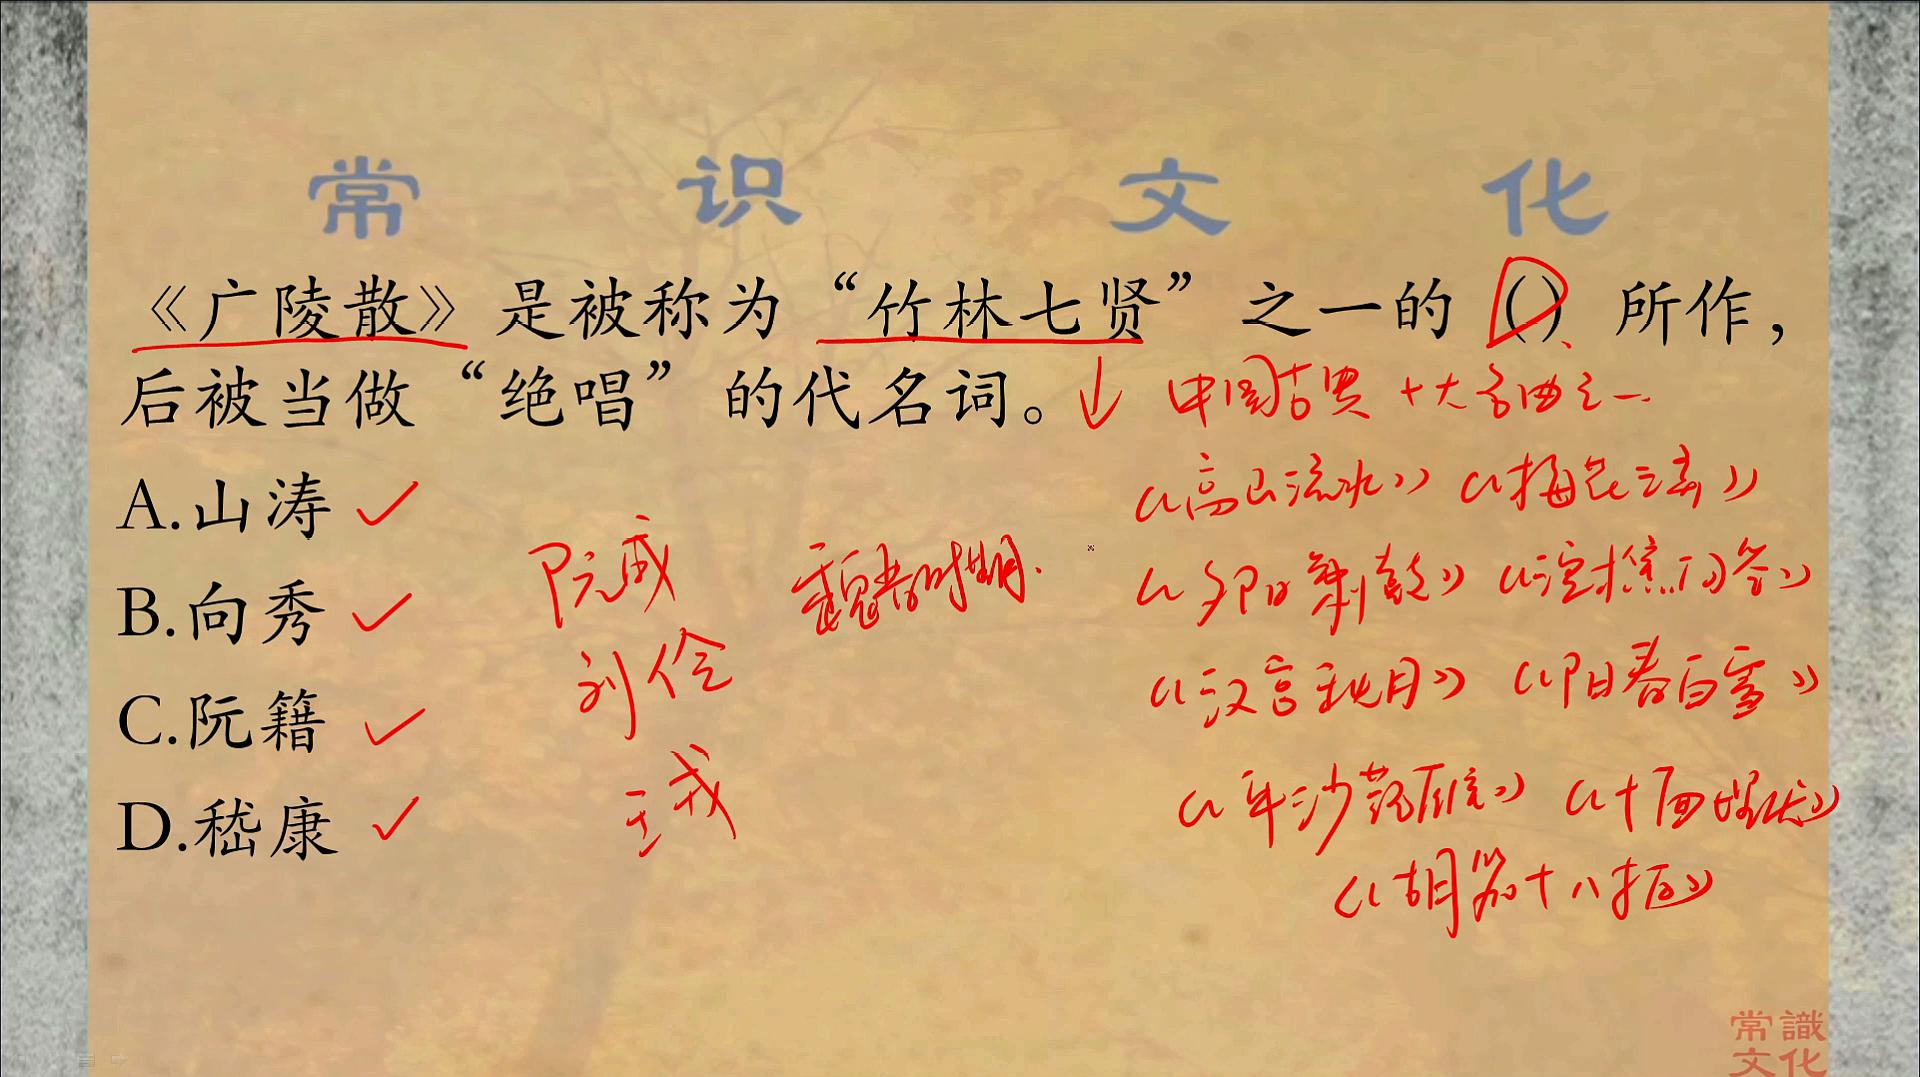 常识文化
《广陵散》是被称为“竹林七贤”之一的()所作，
后被当做“绝唱”的代名词。
中国古典十大名曲之一
A.山涛
《高山流水》《梅花三弄》
阮咸
魏晋时期.
《夕阳箫鼓》《渔樵问答》
B.向秀
刘伶
《汉宫秋月》《阳春白雪》
C.阮籍
王戎
《平沙落雁》《十面埋伏》
D.嵇康
《胡笳十八拍》
常識
文化